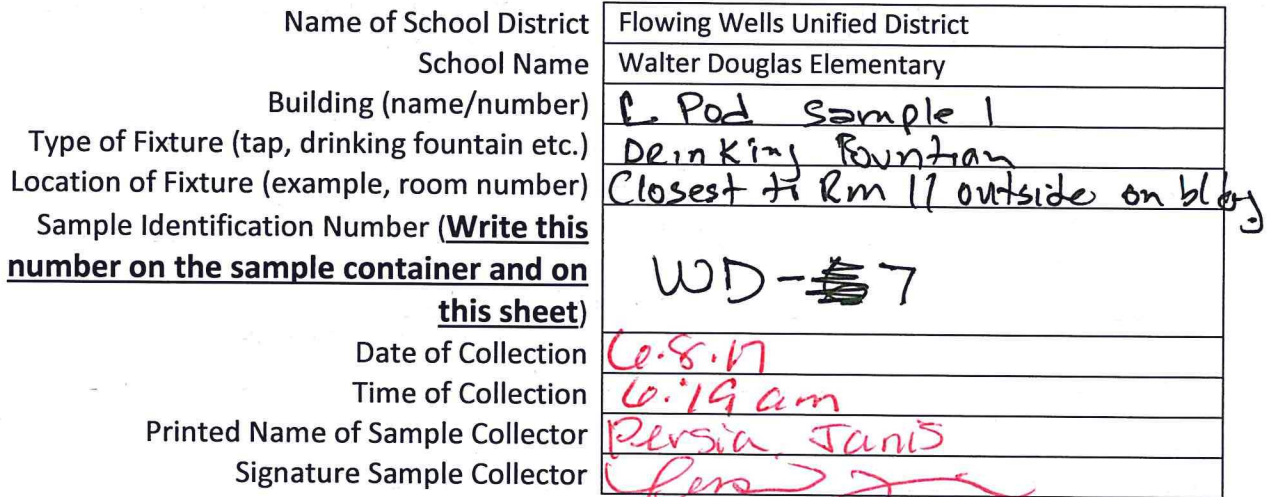 Name of School District Flowing Wells Unified District
School Name Walter Douglas Elementary
Building (name/number) C Pod Sample 1
Type of Fixture (tap, drinking fountain etc.) Drinking Fountian
Location of Fixture (example, room number) Closest to Rm 11 outside on bldg
Sample Identification Number (Write this
number on the sample container and on
this sheet)
WD-7
Date of Collection 6.8.17
Time of Collection 6:19 am
Printed Name of Sample Collector Persia Janis
Signature Sample Collector